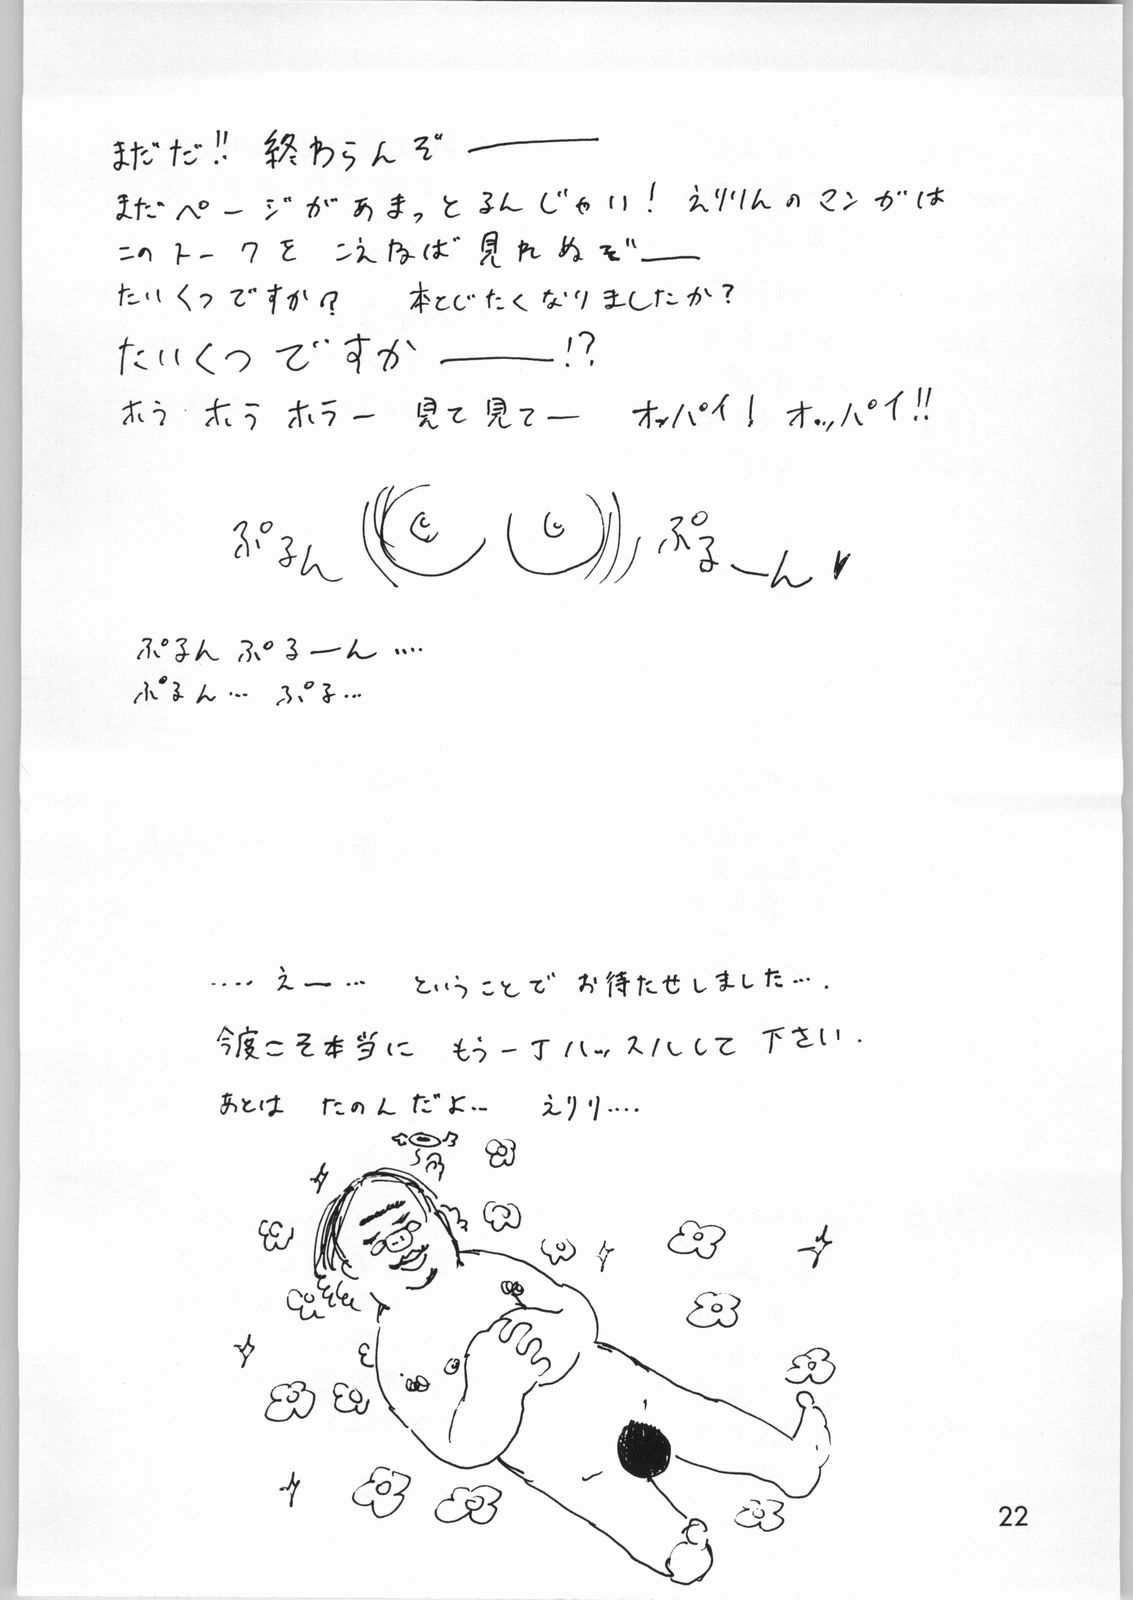 まだだ!! 終わらんぞ――
まだページがあまっとるんじゃい! えりりんのマンガは
このトークを こえねば見れぬぞ―
たいくつですか? 本とじたくなりましたか?
たいくつですか――!?
ホラ ホラ ホラー 見て見てー オッパイ! オッパイ!!
ぷるん
ぷるーん♥
ぷるん ぷるーん‥‥
ぷるん… ぷる…
‥‥えー… ということで お待たせしました….
今度こそ本当に もう一丁ハッスルして下さい.
あとは たのんだよ… えりり‥‥
22